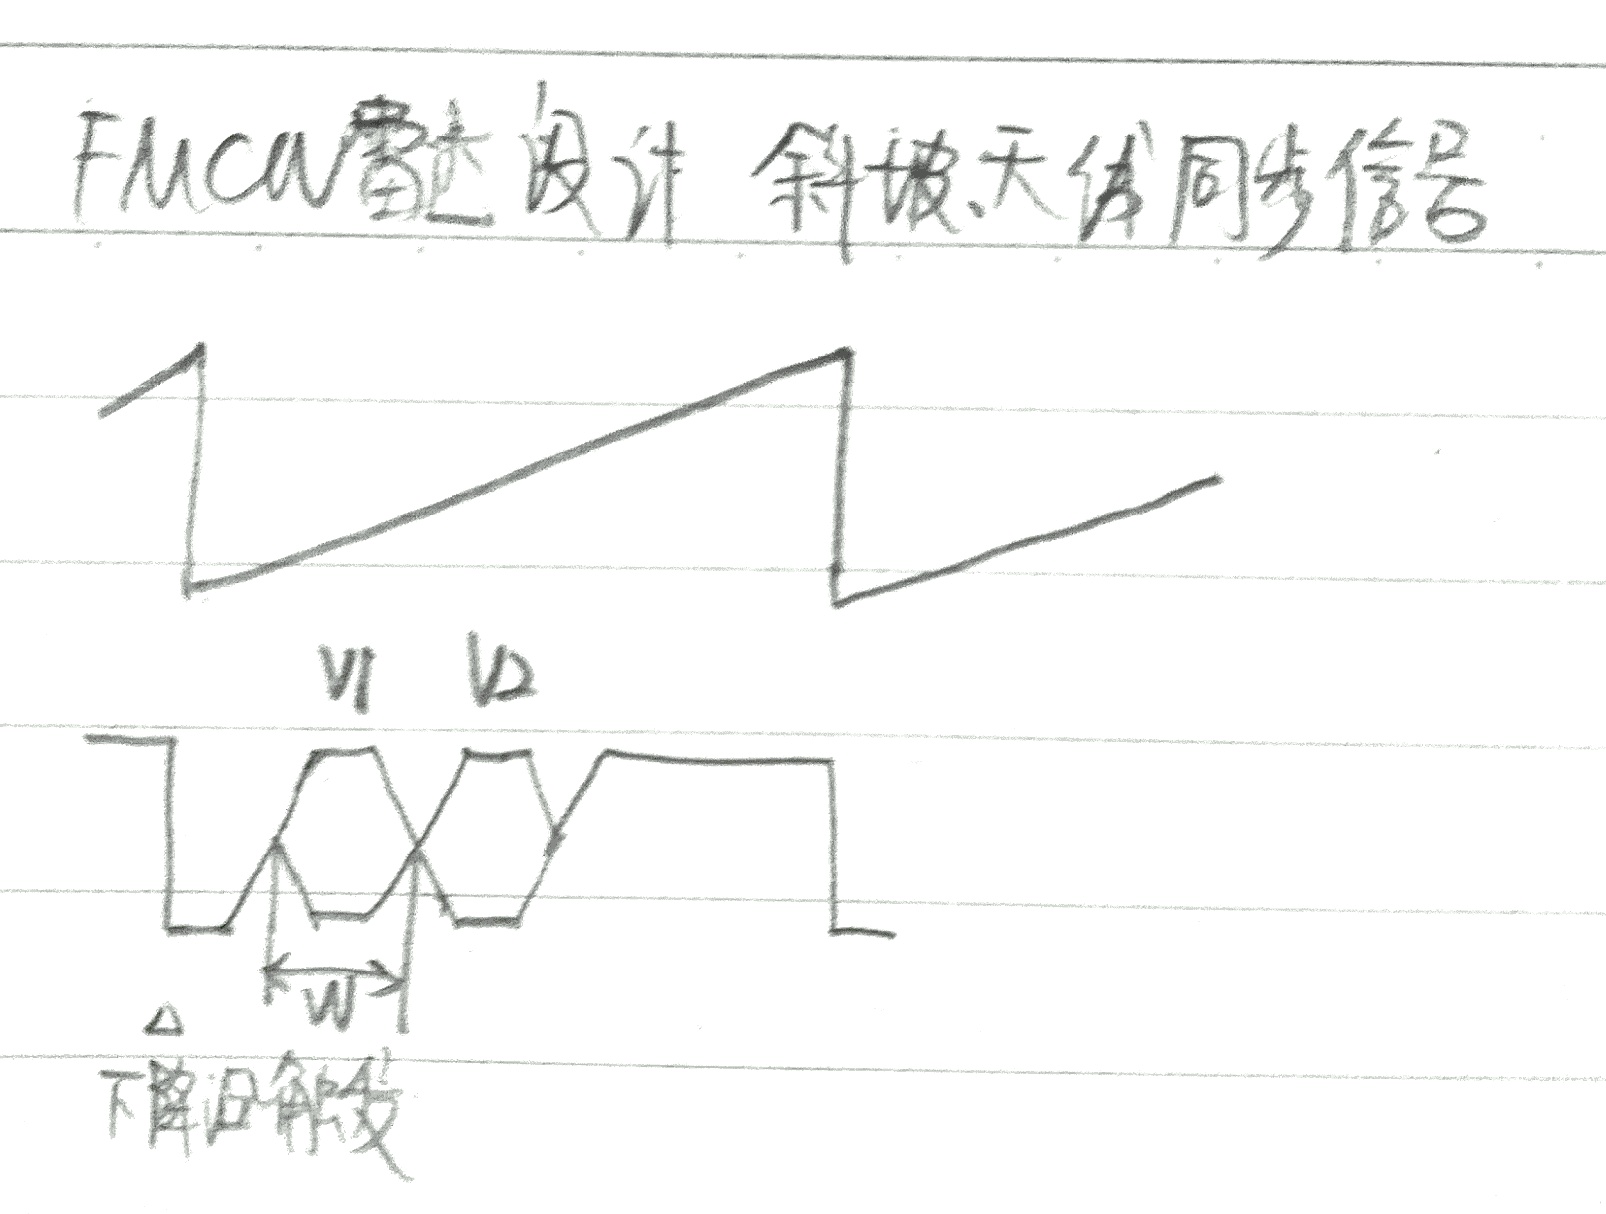 FMCW雷达设计 斜坡、天线同步信号
V1 V2
W
△
下降沿触发